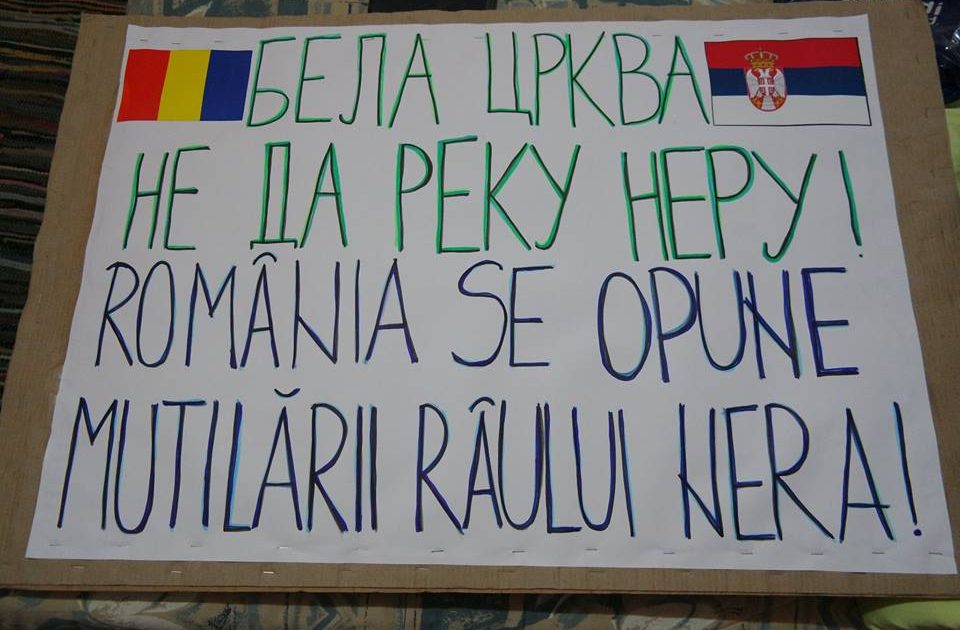 БЕЛА ЦРКВА
НЕ ДА РЕКУ НЕРУ!
ROMÂNIA SE OPUNE
MUTILĂRII RÂULUI NERA!